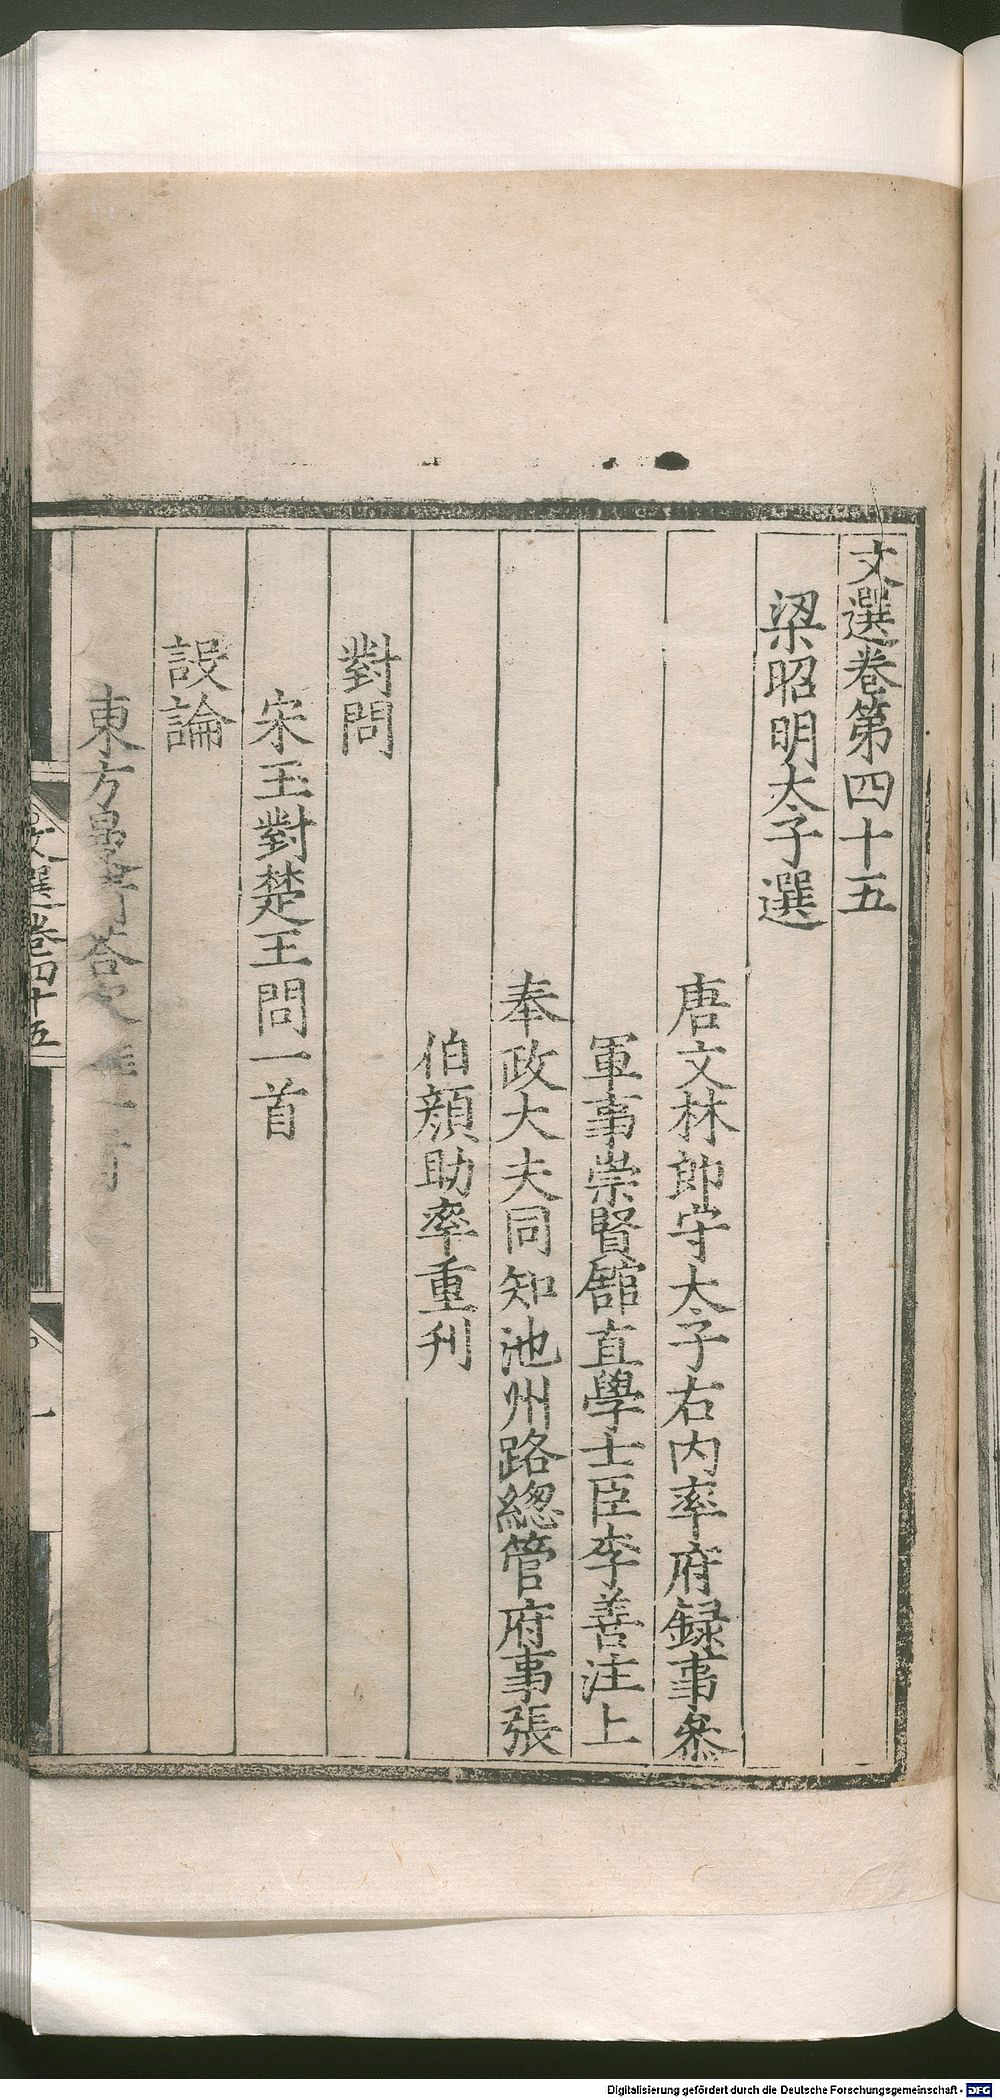 文選卷第四十五
梁昭明太子選
唐文林郎守太子右内率府録事叅
軍事崇賢館直學士臣李善注上
奉政大夫同知池州路總管府事張
伯顔助率重刊
對問
宋玉對楚王問一首
設論
東方曼倩荅客難一首
文選卷四十五
一
Digitalisierung gefördert durch die Deutsche Forschungsgemeinschaft - DFG